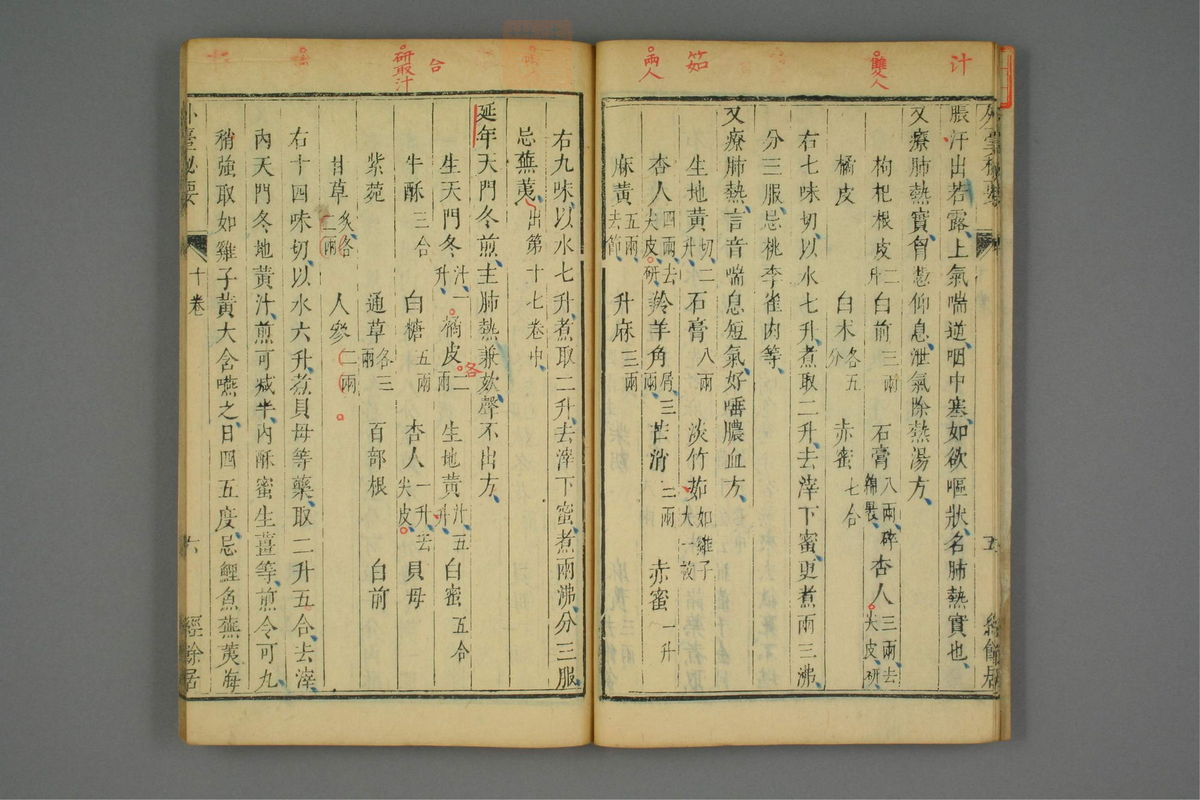 汁
雙人
茹
兩人
脹汗出若露上氣喘逆咽中塞如欲嘔狀名肺熱實也
又療肺熱實胷凭仰息泄氣除熱湯方
枸杞根皮二升 白前三兩 石膏八兩碎綿裹 杏人三兩去尖皮研
橘皮 白术各五分 赤蜜七合
右七味切以水七升煮取二升去滓下蜜更煮兩三沸
分三服忌桃李雀肉等
又療肺熱言音喘息短氣好唾膿血方
生地黄切二升 石膏八兩 淡竹茹如雞子大一枚
杏人四兩去尖皮研 羚羊角屑三兩 芒消二兩 赤蜜一升
麻黄五兩去節 升麻三兩
外臺秘要 五 經餘居
合
研取汁
右九味以水七升煮取二升去滓下蜜煮兩沸分三服
忌蕪荑出第十七卷中
延年天門冬煎主肺熱兼欬聲不出方
生天門冬汁一升 橘皮二兩 各 生地黄汁五升 白蜜五合
牛酥三合 白糖五兩 杏人一升去尖皮 貝母
紫菀 通草各三兩 百部根 白前
甘草炙各二兩 人參二兩
右十四味切以水六升煮貝母等藥取二升五合去滓
內天門冬地黄汁煎可減半內酥蜜生薑等煎令可丸
稍強取如雞子黄大含嚥之日四五度忌鯉魚蕪荑海
外臺秘要 十卷 六 經餘居